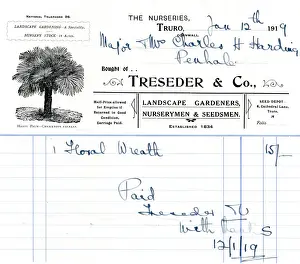 NATIONAL TELEPHONE 96.
LANDSCAPE GARDENING A Speciality.
NURSERY STOCK
THE NURSERIES,
TRURO, Jan 12th 1919
Major & Mrs Charles H Harding
Penhale
Bought of
TRESEDER & Co.,
Half-Price allowed
for Empties if
Returned in Good
Condition,
Carriage Paid.
LANDSCAPE GARDENERS,
NURSERYMEN & SEEDSMEN.
ESTABLISHED 1834
SEED DEPOT:
Cathedral Lane,
Truro.
1 Floral Wreath 15/-
Paid
Treseder
With thanks
12/1/19